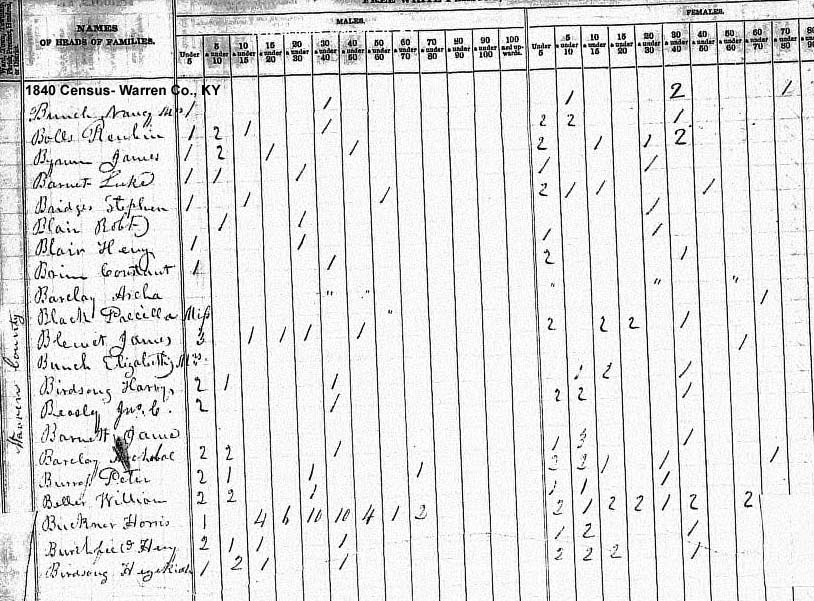 NAMES
OF HEADS OF FAMILIES.
MALES.
FEMALES.
Under 5
5 & under 10
10 & under 15
15 & under 20
20 & under 30
30 & under 40
40 & under 50
50 & under 60
60 & under 70
70 & under 80
80 & under 90
90 & under 100
100 and upwards.
Under 5
5 & under 10
10 & under 15
15 & under 20
20 & under 30
30 & under 40
40 & under 50
50 & under 60
60 & under 70
70 & under 80
80
1840 Census- Warren Co., KY
Bunch Nancy Mrs 1 1 1 2 1
Bolls Reubin 1 2 1 1 2 2 1
James 1 2 1 1 2 1 1 2
Barnet Luke 1 1 1 1 1
Bridges Stephen 1 1 1 2 1 1 1
Blair Robt 1 1 1
Blair Heny 1 1 1 1
Constant 1 1 2 1
Barclay Archa " " " " "
Black Miss " 1
Blewet James 3 1 1 1 1 2 2 2 1
Bunch Elizabeth Mrs. 1
Birdsong 2 1 1 1 2 1
Beasly Jno. C. 2 1 2 2 1
Barnett Jame
Barclay 2 2 1 1 3 1
Peter 2 1 1 1 2 2 1 1 1
William 2 2 1 1 1 1
Buckner Horris 1 4 6 10 10 4 1 2 2 1 2 2 1 2 2
Burchfield Heny 2 1 1 1 1 2 1
Birdsong Hezekiah 1 2 1 1 2 2 2 1
Warren County